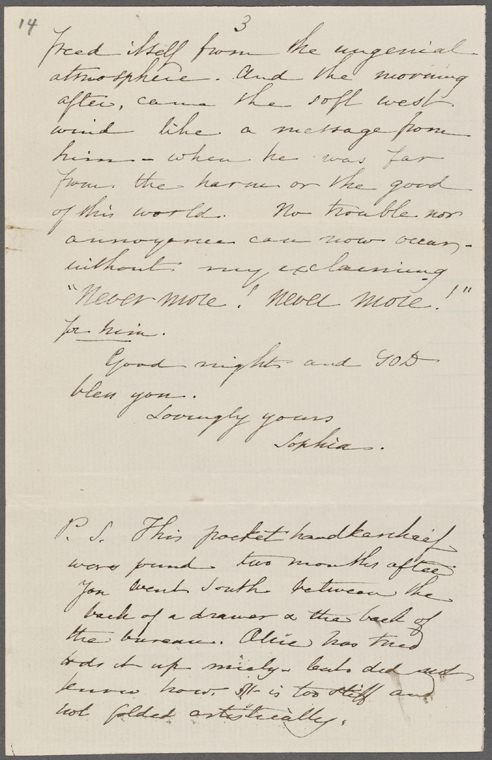 14
3
freed itself from the ungenial
atmosphere. And the morning
after, came the soft west
wind like a message from
him - when he was far
from the harm or the good
of this world. No trouble nor
annoyance can now occur,
without my exclaiming
"Never more! Never more!"
for him.
Good night and GOD
bless you.
Lovingly yours
Sophia.
P. S. This pocket handkerchief
were found two months after
you went South between the
back of a drawer & the back of
the bureau. Alice has tried
to do it up nicely but did not
know how. It is too stiff and
not folded artistically.